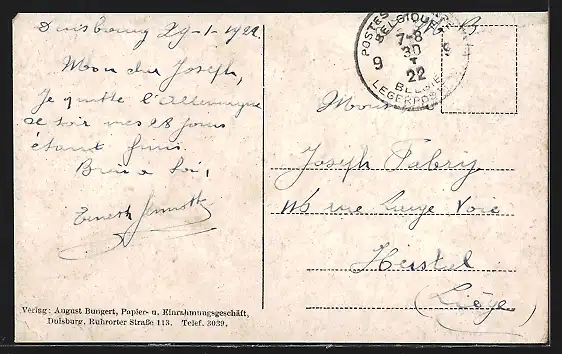 Duisbourg 29-1-1922
Mon cher Joseph,
Je quitte l'Allemagne
ce soir mes 28 jours
étant finis.
Bien à toi,
Ernest
POSTES
BELGIQUE
7-8
30
I
22
9
BELGIE
LEGERPOST
Joseph Fabry
rue Large Voie
Herstal
(Liége)
Verlag: August Bungert, Papier- u. Einrahmungsgeschäft,
Duisburg, Ruhrorter Straße 113. Telef. 3039.